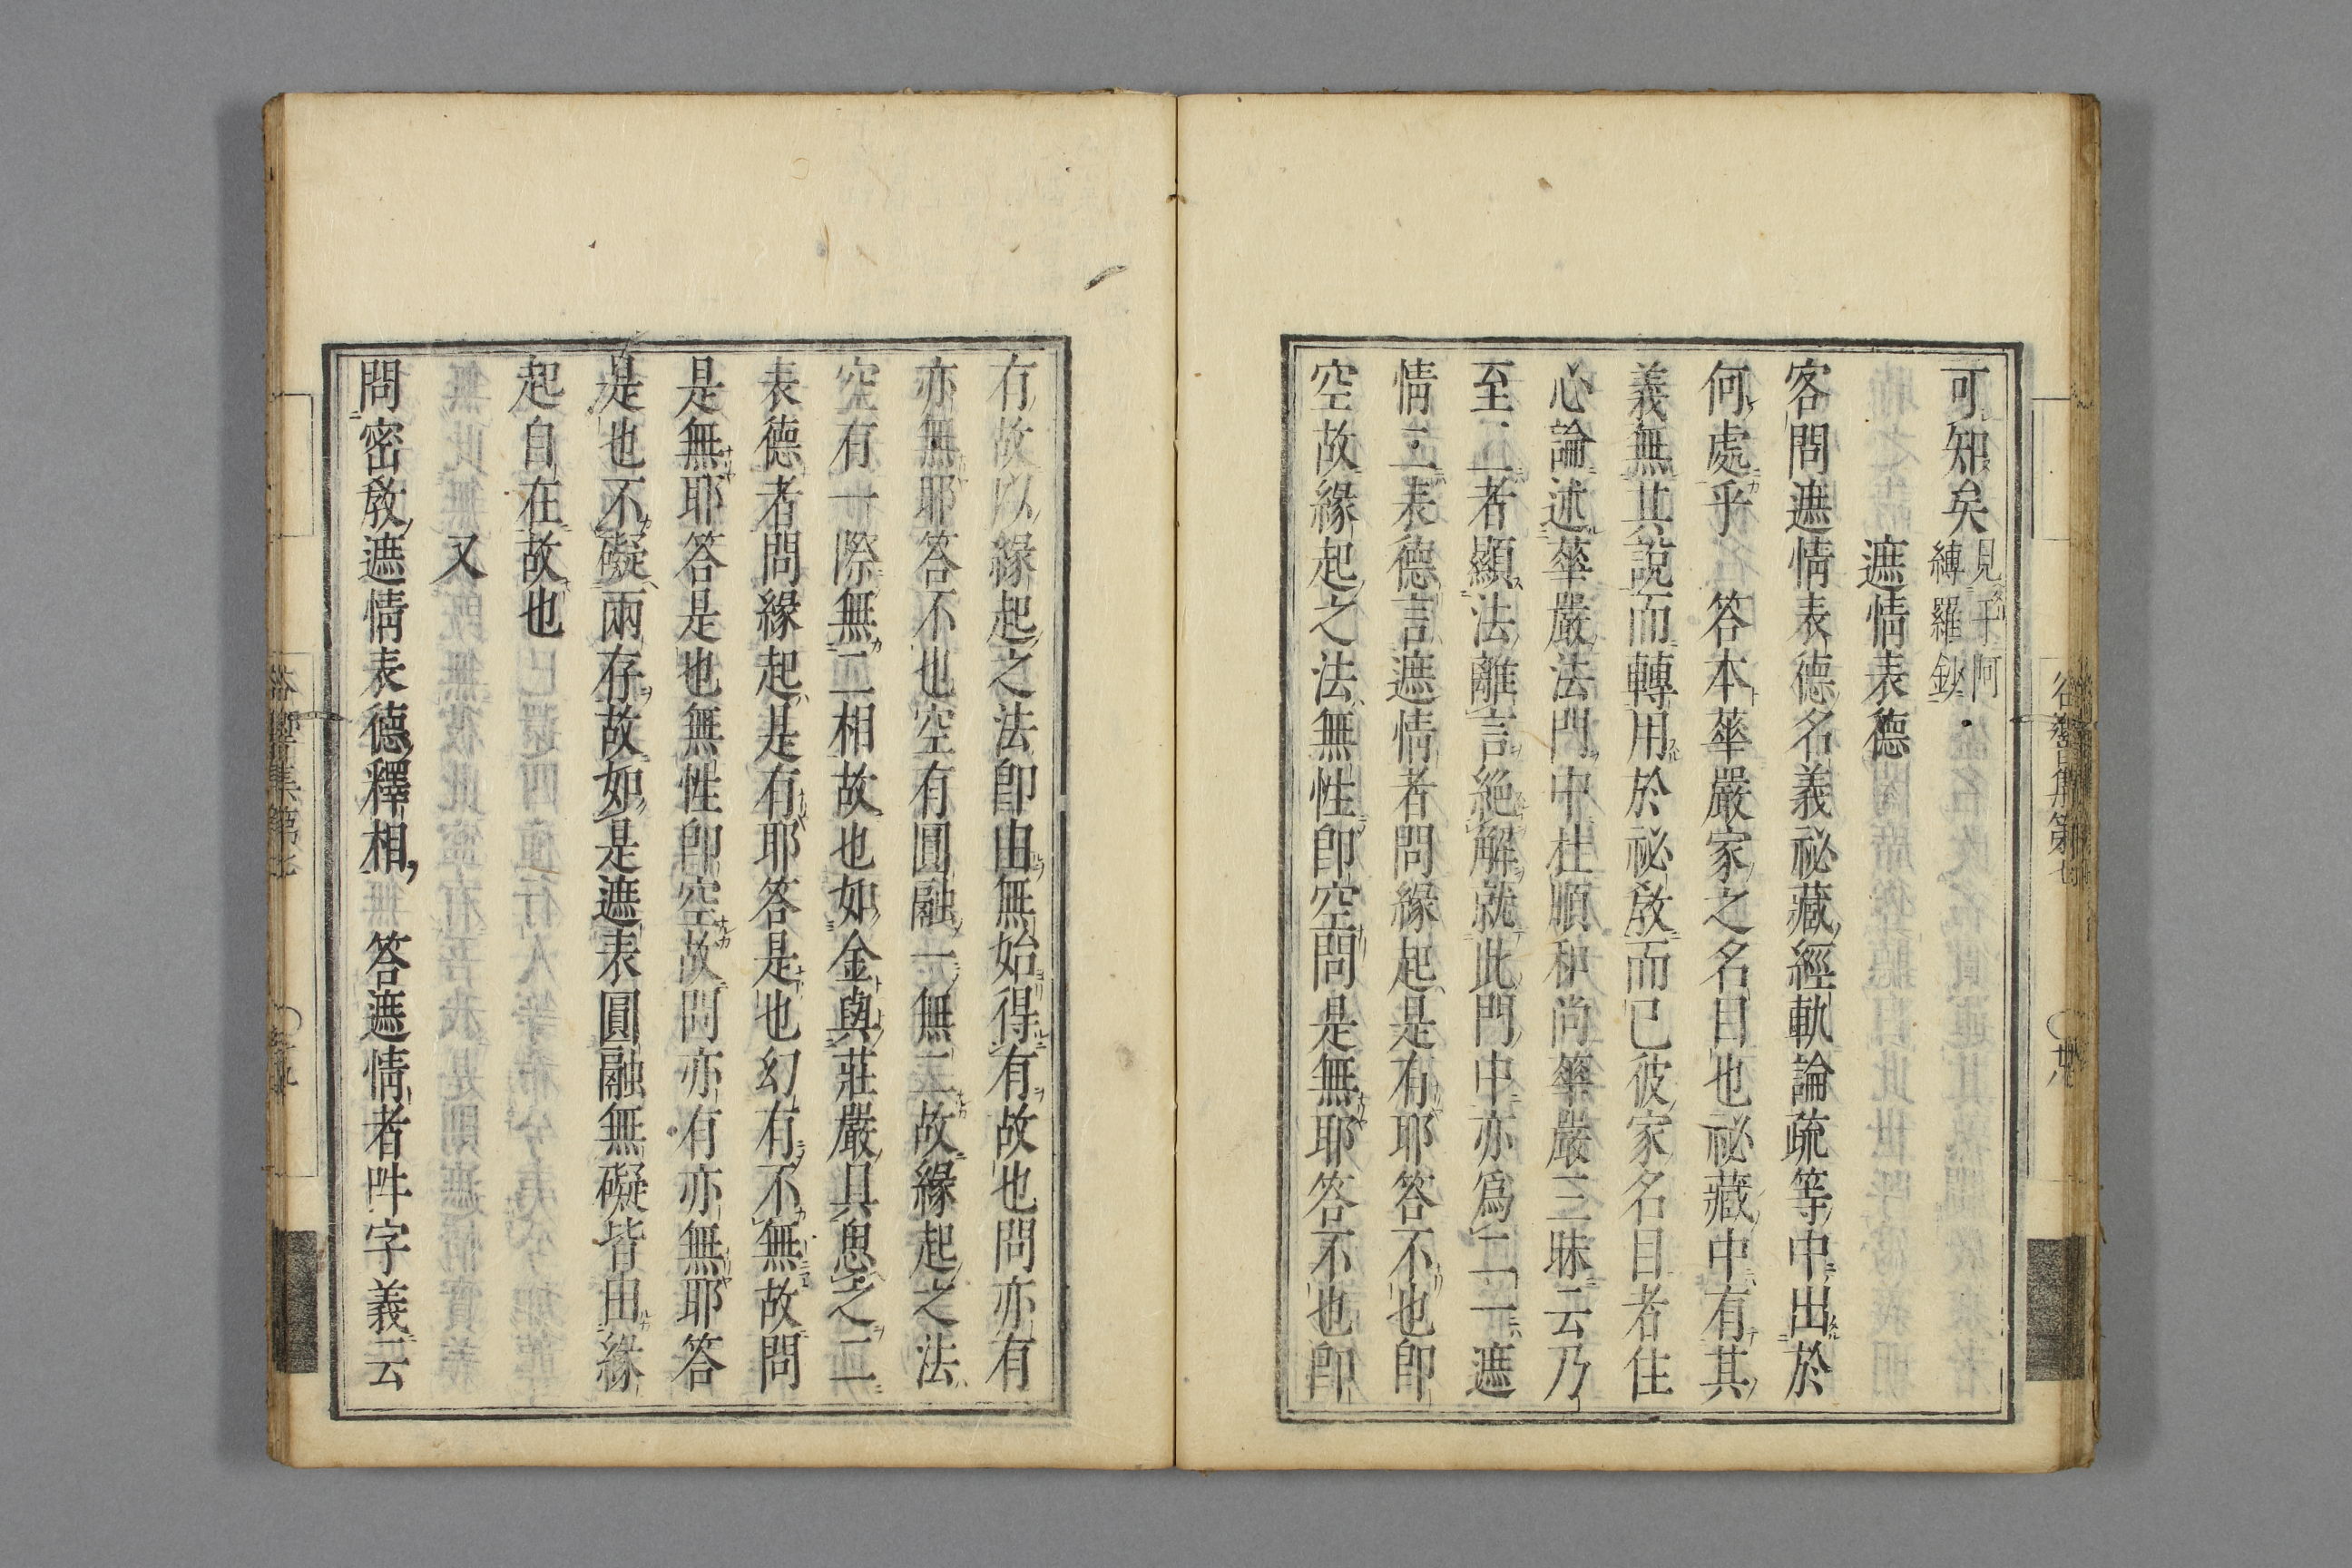 可知矣見于阿縛羅鈔
遮情表德
客問遮情表德名義祕藏經軌論疏等中出於
何處乎　答本華嚴家之名目也祕藏中有其
義無其說而轉用於祕敎而已彼家名目者住
心論述華嚴法門中杜順和尚華嚴三昧云乃
至二者顯法離言絶解就此門中亦爲二一遮
情二表德言遮情者問緣起是有耶答不也卽
空故緣起之法無性卽空問是無耶答不也卽
有故以緣起之法卽由無始得有故也問亦有
亦無耶答不也空有圓融一無二故緣起之法
空有一際無二相故也如金與莊嚴具思之二
表德者問緣起是有耶答是也幻有不無故問
是無耶答是也無性卽空故問亦有亦無耶答
是也不礙兩存故如是遮表圓融無礙皆由緣
起自在故也
又
問密敎遮情表德釋相　答遮情者吽字義云
谷響集第七